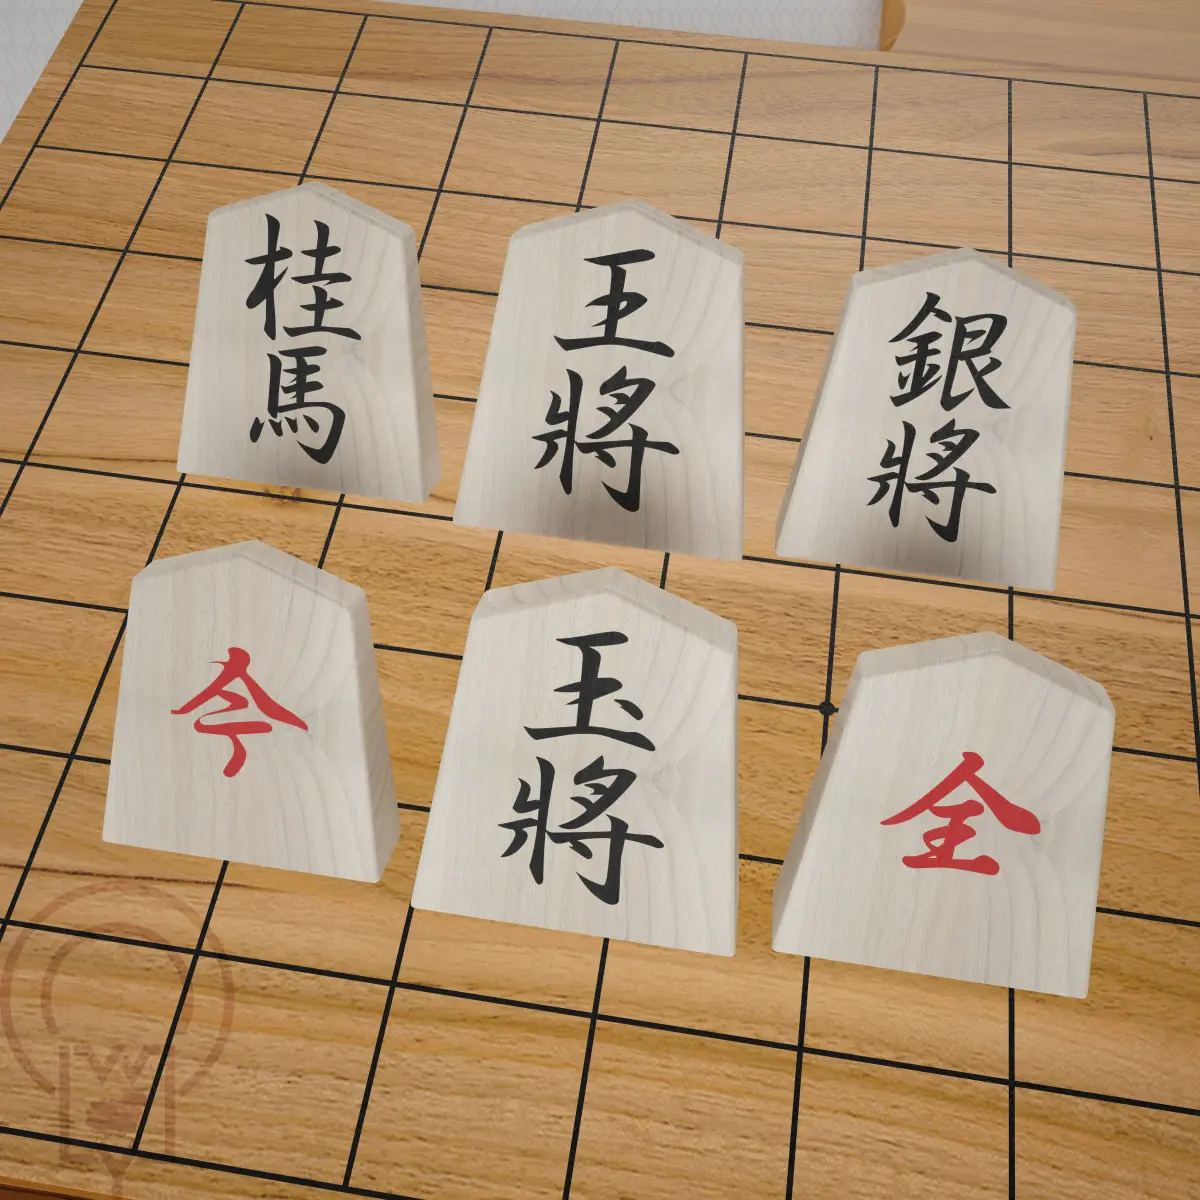 桂馬
王將
銀將
今
玉將
全